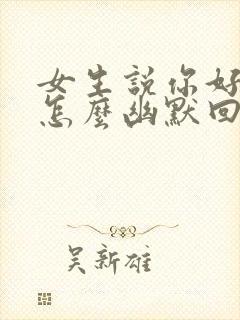 女生說你好
怎麼幽默回
吳新雄